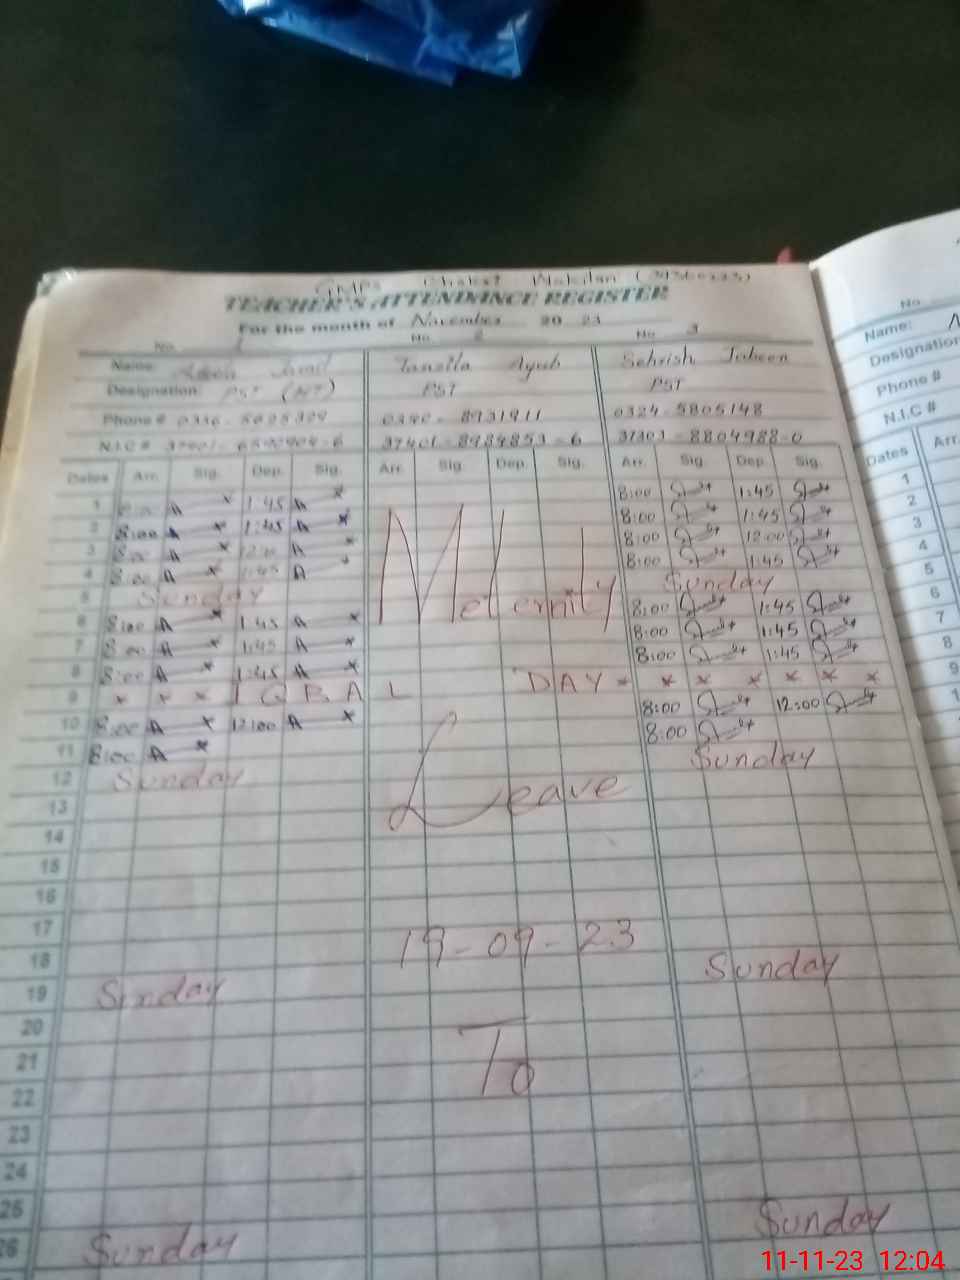 GMPS Chakat Wakilan
TEACHER'S ATTENDANCE REGISTER
For the month of November 20 23
No. 1 No. 2 No. 3
Name: Tanzila Ayub Sehrish Jabeen Name:
Designation: PST PST PST Designation
Phone # 0324-5805148 Phone #
N.I.C # 37401-8984853-6 37303-8804988-0 N.I.C #
Dates Arr. Sig. Dep. Sig. Arr. Sig. Dep. Sig. Arr. Sig. Dep. Sig. Dates Arr.
1 1:45 8:00 1:45 1
2 8:00 1:45 8:00 1:45 2
3 8:00 8:00 12:00 3
4 8:00 1:45 8:00 1:45 4
5 Sunday Sunday 5
6 8:00 1:45 Meternity 8:00 1:45 6
7 8:00 1:45 8:00 1:45 7
8 8:00 1:45 8:00 1:45 8
9 * * * IQBAL DAY * * * * * * * 9
10 8:00 12:00 8:00 12:00
11 8:00 8:00
12 Sunday Sunday
13 Leave
14
15
16
17
18 19-09-23
19 Sunday Sunday
20
21 To
22
23
24
25
26 Sunday Sunday
11-11-23 12:04